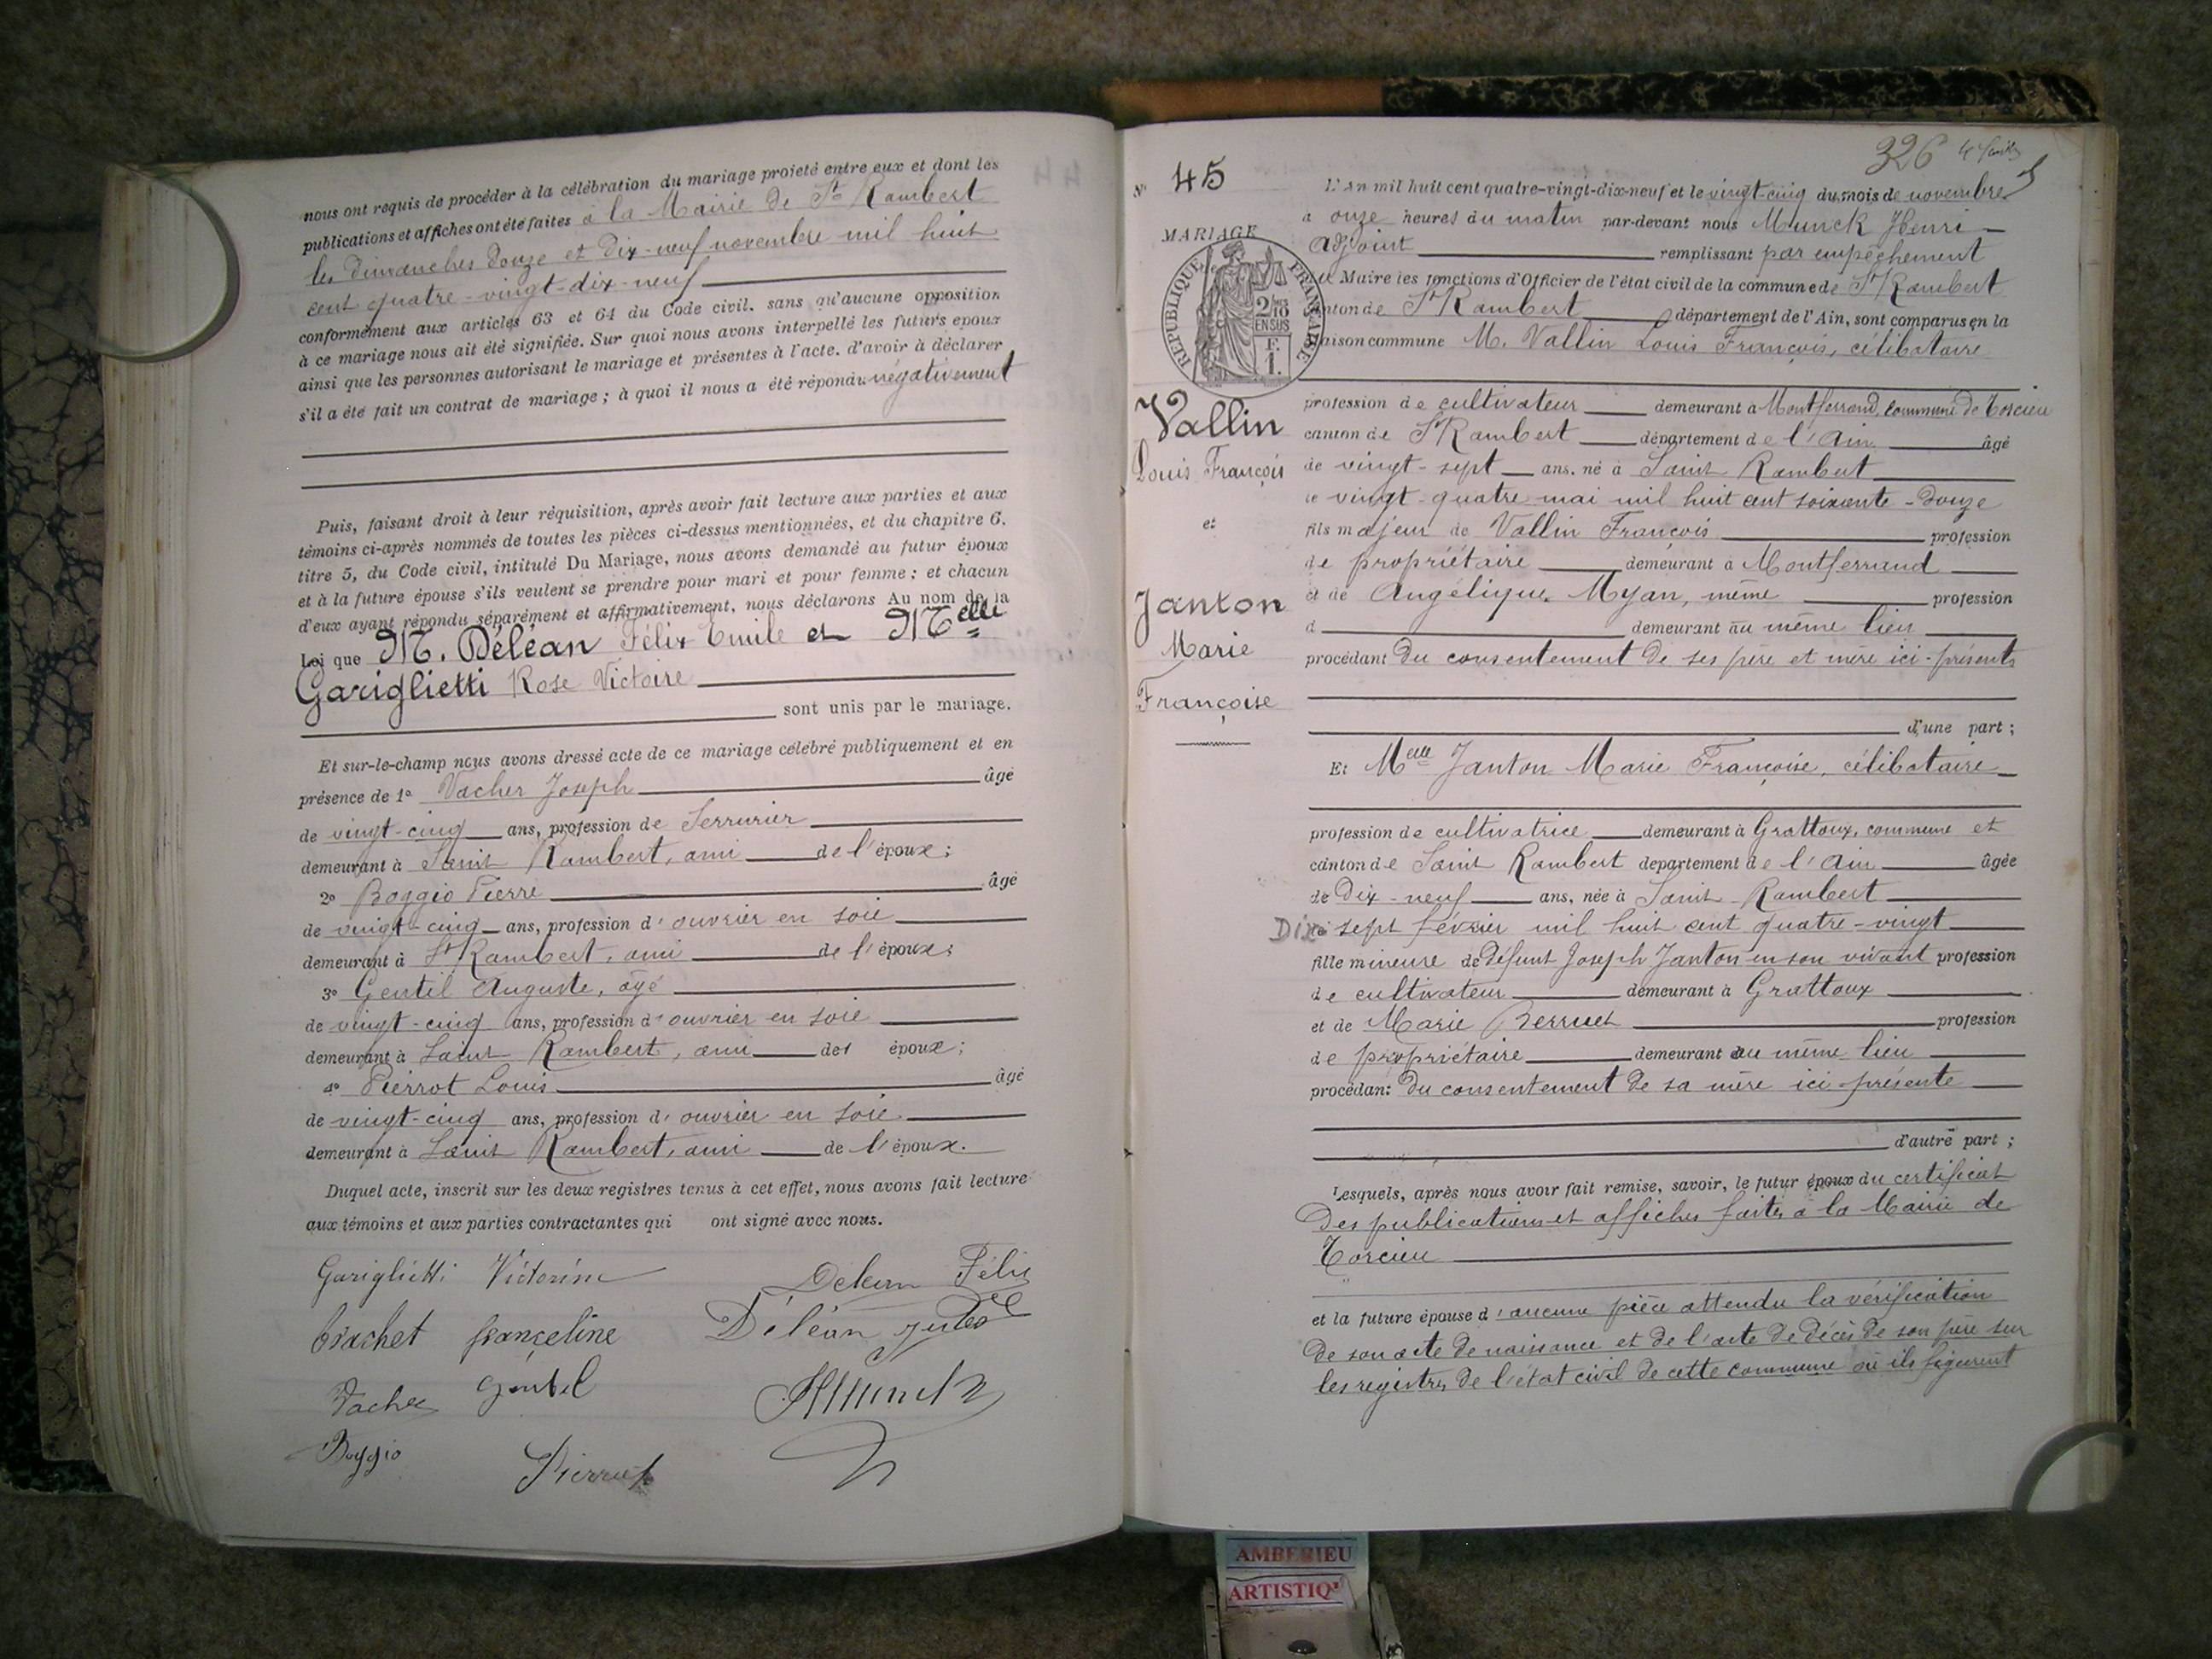 nous ont requis de procéder à la célébration du mariage projeté entre eux et dont les
publications et affiches ont été faites à la Mairie de St Rambert
les dimanches douze et dix-neuf novembre mil huit
cent quatre-vingt-dix-neuf
conformément aux articles 63 et 64 du Code civil. sans qu'aucune opposition
à ce mariage nous ait été signifiée. Sur quoi nous avons interpellé les futurs epoux
ainsi que les personnes autorisant le mariage et présentes à l'acte. d'avoir à déclarer
s'il a été fait un contrat de mariage ; à quoi il nous a été répondu négativement
Puis, faisant droit à leur réquisition, après avoir fait lecture aux parties et aux
témoins ci-après nommés de toutes les pièces ci-dessus mentionnées, et du chapitre 6.
titre 5, du Code civil, intitulé Du Mariage, nous avons demandé au futur époux
et à la future épouse s'ils veulent se prendre pour mari et pour femme ; et chacun
d'eux ayant répondu séparément et affirmativement, nous déclarons Au nom de la
Loi que M. Déléan Félix Emile et Melle
Gariglietti Rose Victoire
sont unis par le mariage.
Et sur-le-champ nous avons dressé acte de ce mariage célébré publiquement et en
présence de 1° Vacher Joseph âgé
de vingt-cinq ans, profession de Serrurier
demeurant à Saint Rambert, ami de l'époux ;
2° Boggio Pierre âgé
de vingt-cinq ans, profession d'ouvrier en soie
demeurant à St Rambert, ami de l'époux ;
3° Gentil Auguste, âgé
de vingt-cinq ans, profession d'ouvrier en soie
demeurant à Saint Rambert, ami de l époux ;
4° Pierrot Louis âgé
de vingt-cinq ans, profession d'ouvrier en soie
demeurant à Saint Rambert, ami de l'époux.
Duquel acte, inscrit sur les deux registres tenus à cet effet, nous avons fait lecture
aux témoins et aux parties contractantes qui ont signé avec nous.
Gariglietti Victorine Délean Félix
françeline Déléan
Vacher Gentil HMunck
Boggio Pierrot
326
N° 45
L'an mil huit cent quatre-vingt-dix-neuf et le vingt-cinq du mois de novembre
à onze heures du matin par-devant nous Munck Henri
adjoint remplissant par empêchement
MARIAGE
RÉPUBLIQUE FRANÇAISE
2/10 EN SUS
F. 1.
de Maire les fonctions d'Officier de l'état civil de la commune de St Rambert
canton de St Rambert département de l'Ain, sont comparus en la
maison commune M. Vallin Louis François, célibataire
Vallin
Louis François
et
Janton
Marie
Françoise
profession de cultivateur demeurant à Montferrand, commune de Torcieu
canton de St Rambert département de l'Ain âgé
de vingt-sept ans. né à Saint Rambert
le vingt-quatre mai mil huit cent soixante-douze
fils majeur de Vallin François profession
de propriétaire demeurant à Montferrand
et de Angélique Myan, même profession
d demeurant au même lieu
procédant du consentement de ses père et mère ici-présents
d'une part ;
Et Melle Janton Marie Françoise, célibataire
profession de cultivatrice demeurant à Grattoux, commune et
canton de Saint Rambert département de l'Ain âgée
de Dix-neuf ans, née à Saint Rambert
Dix sept février mil huit cent quatre-vingt
fille mineure de défunt Joseph Janton en son vivant profession
de cultivateur demeurant à Grattoux
et de Marie profession
de propriétaire demeurant au même lieu
procédant du consentement de sa mère ici-présente
d'autre part ;
Lesquels, après nous avoir fait remise, savoir, le futur époux du certificat
des publications et affiches faites à la Mairie de
Torcieu
et la future épouse d'aucune pièce attendu la vérification
de son acte de naissance et de l'acte de décès de son père sur
les registres de l'état civil de cette commune où ils figurent
AMBERIEU
ARTISTIQ